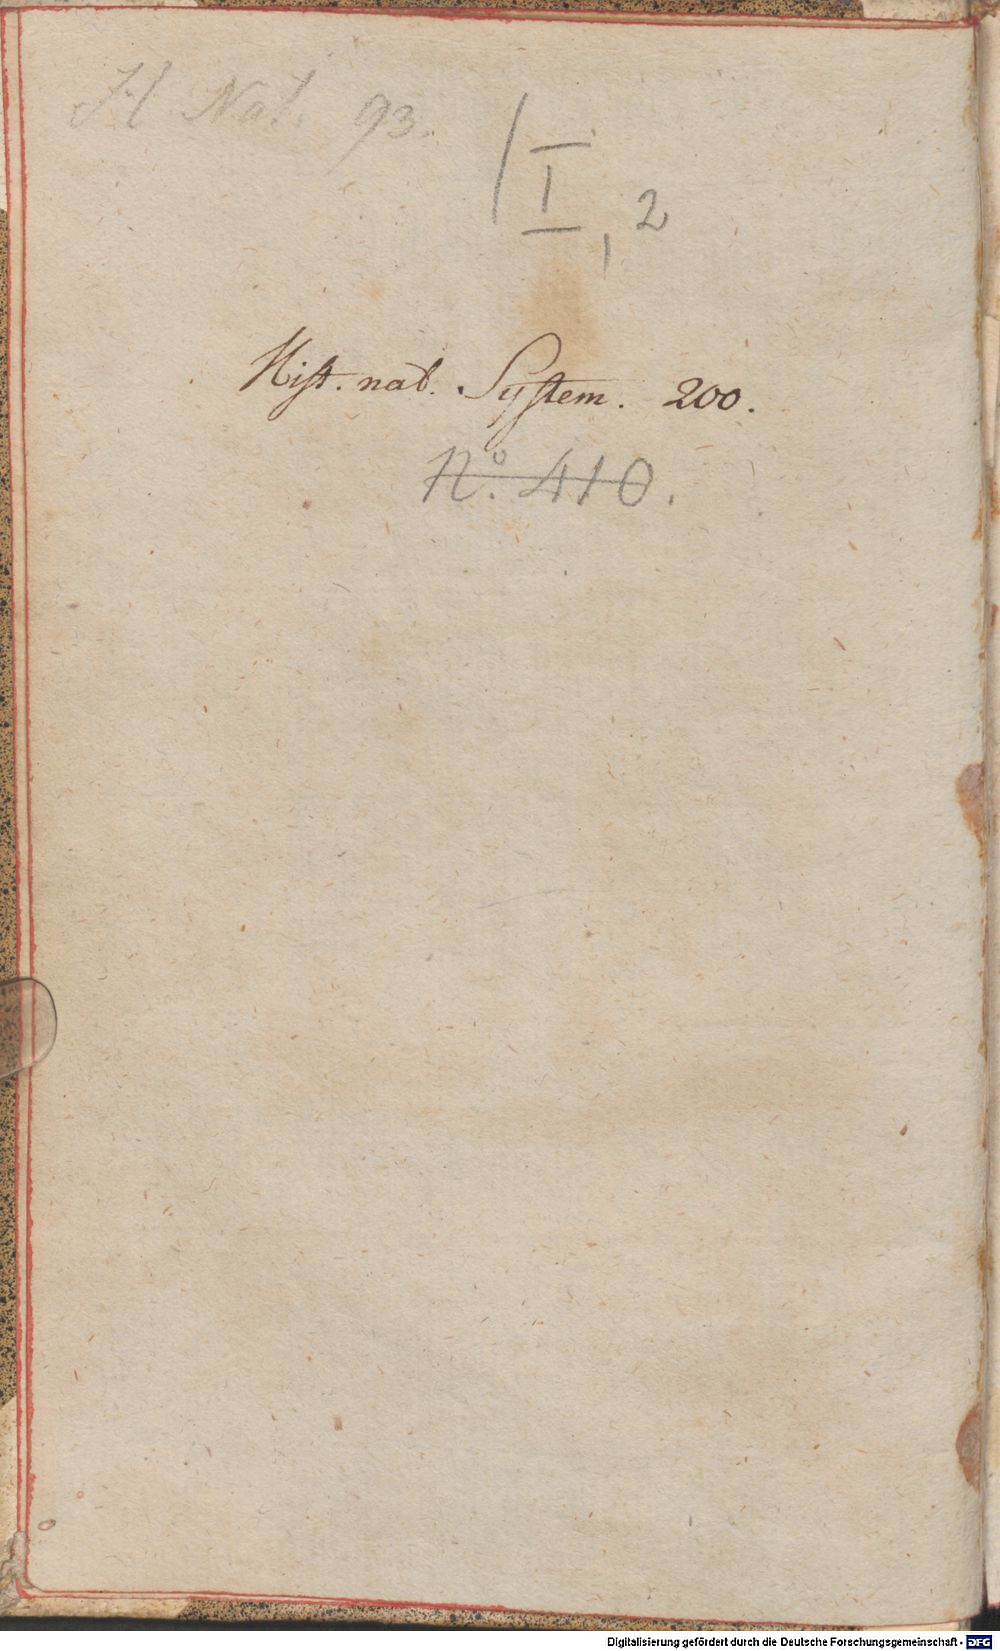 H Nat. 93.
/ I, 2
Hist. nat. System. 200.
N.º 410.
Digitalisierung gefördert durch die Deutsche Forschungsgemeinschaft - DFG